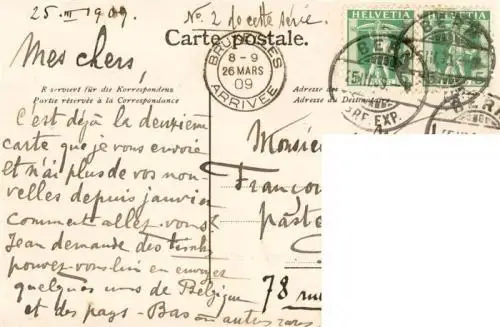 25. III 1909.
No. 2 de cette série.
Carte postale.
Mes chers,
BRUXELLES
8-9
26 MARS
09
ARRIVEE
HELVETIA
HELVETIA
5
5
BERN
BRF. EXP.
Reserviert für die Korrespondenz
Partie réservée à la Correspondance
Adresse des
Adresse du Destinataire
C'est déjà la deuxième
carte que je vous envoie
et n'ai plus de vos nou-
velles depuis janvier
Comment allez-vous
Jean demande des timbres
pouvez-vous lui en envoyer
quelques uns de Belgique
et des pays-Bas ou autres rares
Monsieur
François
paste
78 rue